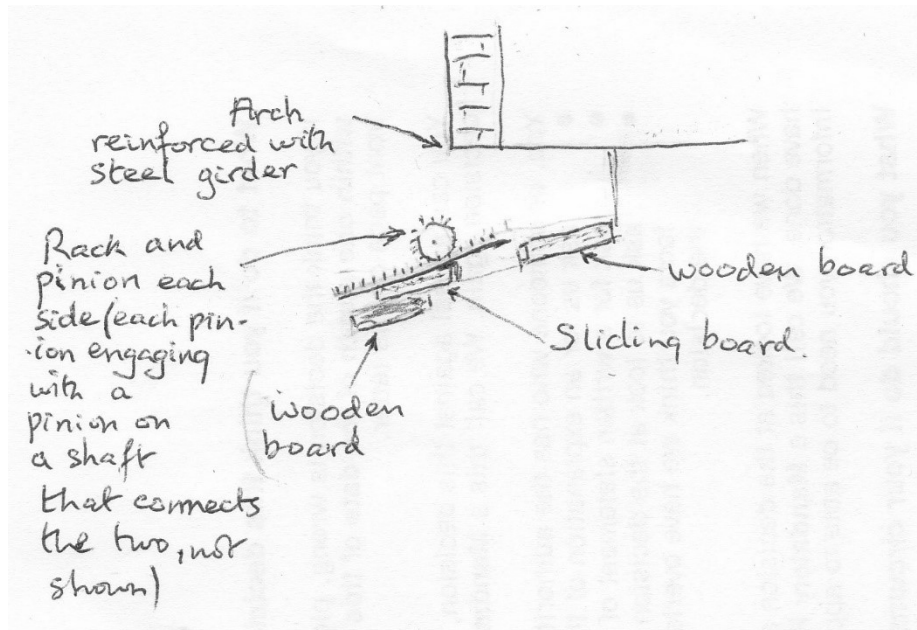 Arch
reinforced with
steel girder
Rack and
pinion each
side (each pin-
-ion engaging
with a
pinion on
a shaft
that connects
the two, not
shown)
wooden
board
Sliding board.
wooden board